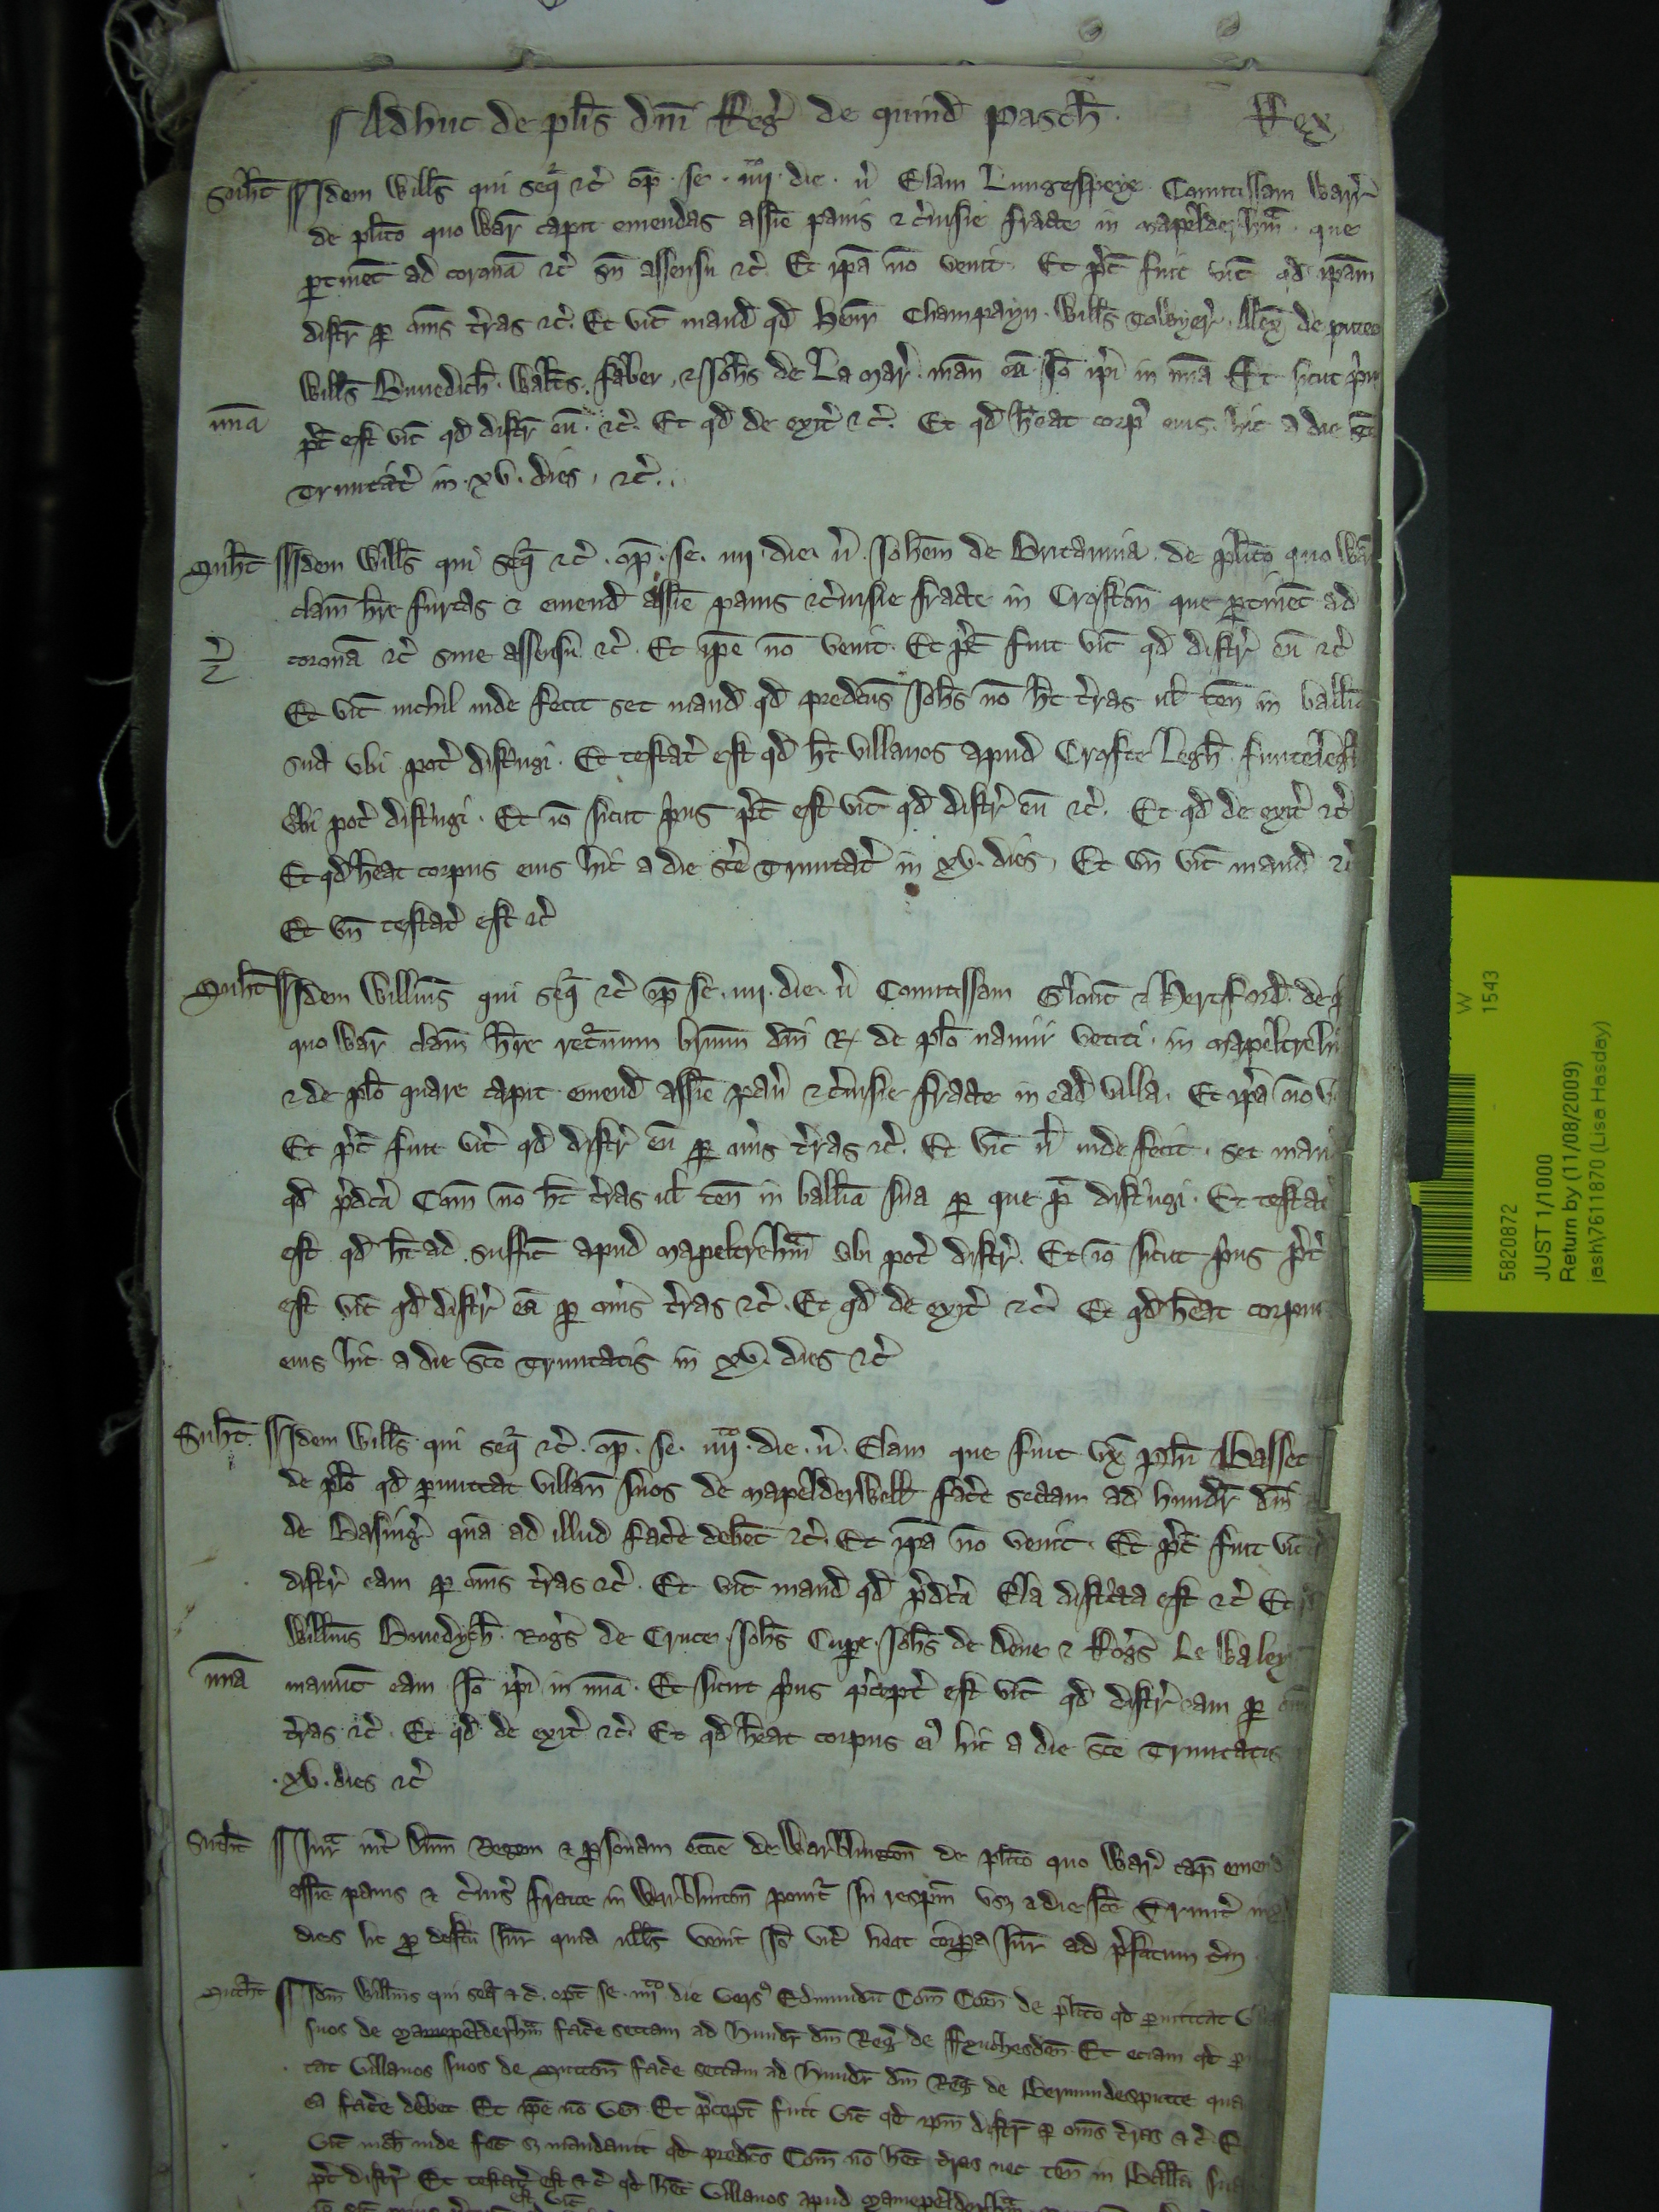 Adhuc de płis dñi Reg̃ de quind̃ Pasch̃. Rex
Suht̃ Idem Wills̃ qui seq̃ ⁊c̃ op̃ · se · iiij · die · ṽ Elam Lungespeye Comitissam Warr̃
de plito quo War̃ capit emendas assie panis ⁊ c̃uisie fracte in Mapelder hm̃ · que
ptinet̃ ad coronã ⁊c̃ sñ assensu ⁊c̃. Et ip̃a nõ venit. Et p̃c̃ fuit vic̃ qd̃ ip̃am
distr̃ p om̃s t̃ras ⁊c̃. Et vic̃ mand̃ qd̃ Henr̃ Champayn · Wills̃ · Alex̃ de puteo
Wills̃ Benedich̃ · Walt̃s · faber · ⁊ Joh̃s de La Mar̃ · man̄ eã · Iõ ip̃i in m̃ia Et sicut p̃us
m̃ia p̃c̃ est vic̃ qd̃ distr̃ eũ · ⁊c̃. Et qd̃ de exit̃ ⁊c̃. Et qd̃ h̃eat corp̃ eius · hic a die s̃c̃e
Trinitat̃ in · xv · dies · ⁊c̃ ·
Suht̃ Idem Wills̃ qui seq̃ ⁊c̃ · op̃ · se · iiij · die · ṽ · Joh̃em de Britannia · de plito quo War̃
clam̃ h̃re furcas ⁊ emend̃ assie panis ⁊ c̃uisie fracte in Crofton̄ que ptinet̃ ad
coronã ⁊c̃ sine assensu ⁊c̃. Et ip̃e nõ venit. Et p̃c̃ fuit vic̃ qd̃ distr̃ eũ ⁊c̃
Et vic̃ nichil inde fecit set mand̃ qd̃ predc̃us Joh̃s nõ h̃t t̃ras ul̃ ten̄ in ballia
sua vbi pot̃ dist̃ngi. Et testat̃ est qd̃ h̃t villanos apud Crofte Legh̃
vbi pot̃ dist̃ngi. Et iõ sicut p̃us p̃c̃ est vic̃ qd̃ distr̃ eũ ⁊c̃. Et qd̃ de exit̃ ⁊c̃
Et qd̃ h̃eat corpus eius hic a die s̃c̃e Trinitat̃ in xv · dies, Et vñ vic̃ mand̃ ⁊c̃
Et vñ testat̃ est ⁊c̃
Suht̃ Idem Willms̃ qui seq̃ ⁊c̃ op̃ se · iiij · die · ṽ Comitissam Glouc̃ ⁊ Hertford̃ · de
quo War̃ clam̃ h̃re ret̃num br̃ium dñi R · de plo namii vetiti · in
⁊ de plo quare capit emend̃ assie pan̄ ⁊ c̃uisie fracte in ead̃ villa. Et ip̃a nõ
Et p̃c̃ fuit vic̃ qd̃ distr̃ eũ p om̃s t̃ras ⁊c̃. Et vic̃ ñl inde fecit · set man
qd̃ p̃dc̃a Com̃ nõ h̃t t̃ras ul̃ ten̄ in ballia sua p que p̃ dist̃ngi. Et testat̃
est qd̃ h̃t ad suffic̃ apud Mapeltrehm̃ vbi pot̃ distr̃. Et iõ sicut p̃us p̃c̃
est vic̃ qd̃ distr̃ eã p om̃s t̃ras ⁊c̃. Et qd̃ de exit̃ ⁊c̃ Et qd̃ h̃eat corpus
eius hic a die s̃c̃e Trinitatis in xv · dies ⁊c̃
Suht̃ Idem Wills̃ · qui seq̃ ⁊c̃ · op̃ · se · iiij · die · ṽ · Elam que fuit vx̃ Phi Basset
de plo qd̃ pmittat villan̄ suos de Mapelderwell̃ fac̃e sectam ad hundr̃ dñi
de Basing̃ quã ad illud fac̃e debet̃ ⁊c̃. Et ip̃a nõ venit. Et p̃c̃ fuit vic̃
distr̃ eam p om̃s t̃ras ⁊c̃. Et vic̃ mand̃ qd̃ p̃dc̃a Ela dist̃cta est ⁊c̃ Et
Willms̃ Benedych̃ · Rog̃s de Cruce · Joh̃s Cupe · Joh̃s de Dene ⁊ Rog̃s Le Waley
m̃ia manuc̃ eam Iõ ip̃i in m̃ia. Et sicut p̃us p̃cept̃ est vic̃ qd̃ distr̃ eam p om̃s
t̃ras ⁊c̃. Et qd̃ de exit̃ ⁊c̃. Et qd̃ h̃eat corpus ei hic a die s̃c̃e Trinitatis
· xv · dies ⁊c̃
Suht̃ Iur̃ int̃ Dñm Regem ⁊ psonam ecc̃ie de Warblinton̄ de plito quo War̃ cap̃ emend̃
assie panis ⁊ c̃uis̃ fracte in Warblinton̄ ponit̃ in resp̃m vsq a die s̃c̃e Trinit̃ in
dies hic p def̃cu Iur̃ quia nulls̃ venit Iõ vic̃ h̃eat corpa Iur̃ ad p̃fatum t̃m
Suht̃ Idm̃ Willms̃ qui seq̃ ⁊c̃ · opt̃ se · iiij · die vers Edmundũ Com̃ Corñ de plito qd̃ pmittat
suos de fac̃e sectam ad Hundr̃ dñi Reg̃ de Et eciam qd̃ p
tat villanos suos de Sutton̄ fac̃e sectam ad hundr̃ dñi Reg̃ de Bermundespitte qua
ea fac̃e debet Et ip̃e nõ ven̄. Et p̃cept̃ fuit vic̃ qd̃ ip̃m distr̃ p om̃s t̃ras ⁊c̃. E
vic̃ nich̃ inde fec̃ s mandauit qd̃ predc̃s Com̃ nõ h̃et t̃ras nec ten̄ in Ballia sua
p̃t distr̃ Et testat̃ est ⁊c̃ qd̃ h̃et villanos apud
W
1543
5820872
JUST 1/1000
Return by (11/08/2009)
jash\7611870 (Lise Hasday)